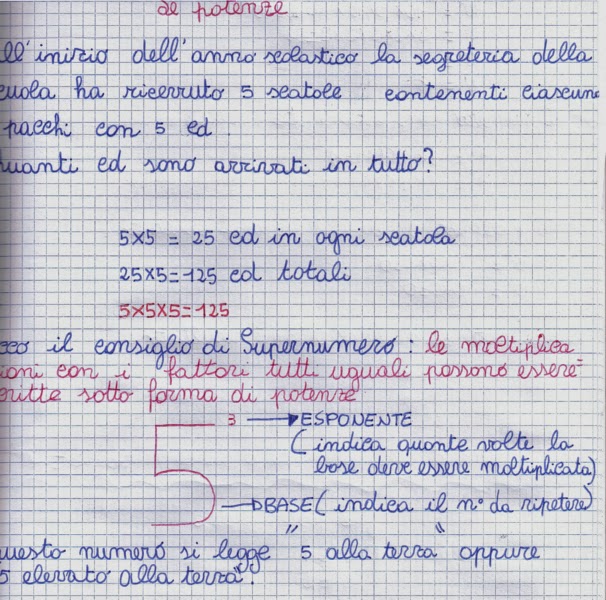 le potenze
ll'inizio dell'anno scolastico la segreteria della
cuola ha ricevuto 5 scatole contenenti ciascuna
pacchi con 5 cd.
uanti cd sono arrivati in tutto?
5×5 = 25 cd in ogni scatola
25×5=125 cd totali
5×5×5=125
cco il consiglio di Supernumero: le moltiplica
ioni con i fattori tutti uguali possono essere
critte sotto forma di potenze
5 3 → ESPONENTE
(indica quante volte la
base deve essere moltiplicata)
→ BASE (indica il n° da ripetere)
uesto numero si legge "5 alla terza" oppure
5 elevato alla terza".